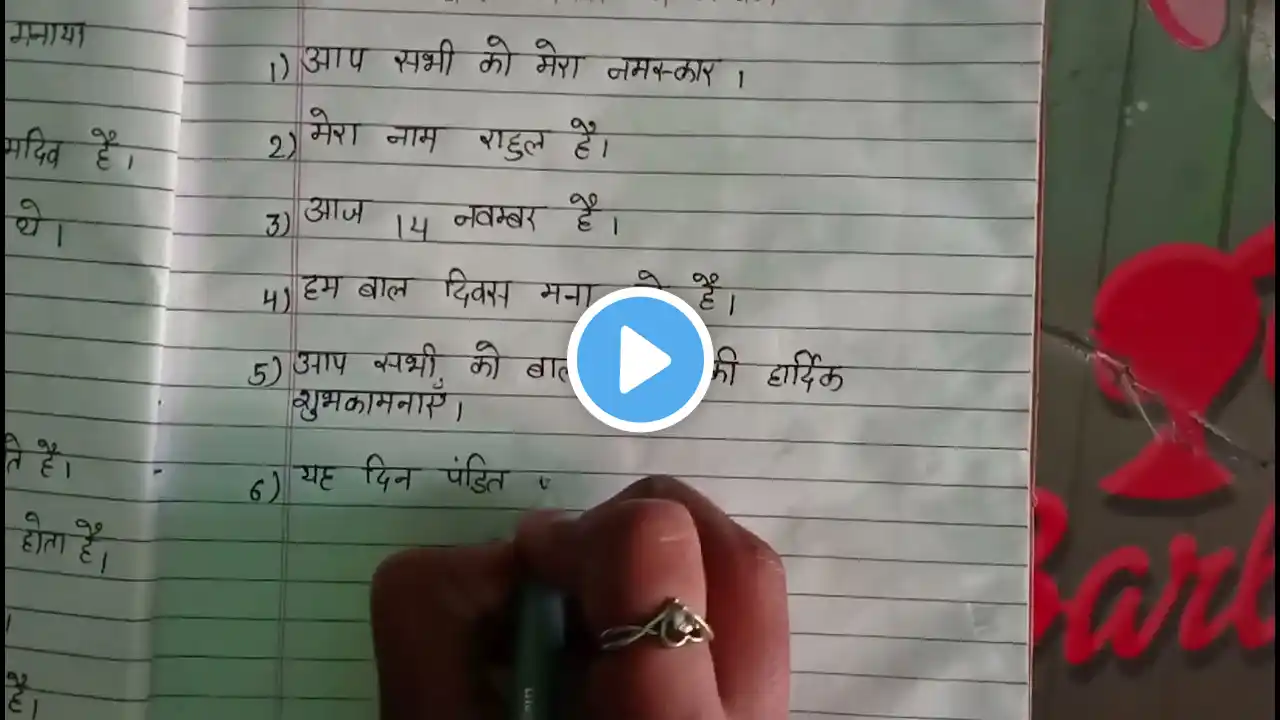 मनाया
है।
थे।
ते है।
होता है।
है।
1) आप सभी को मेरा नमस्कार ।
2) मेरा नाम राहुल है।
3) आज 14 नवम्बर है ।
4) हम बाल दिवस मना है ।
5) आप सभी को की हार्दिक
शुभकामनाएँ ।
6) यह दिन पंडित